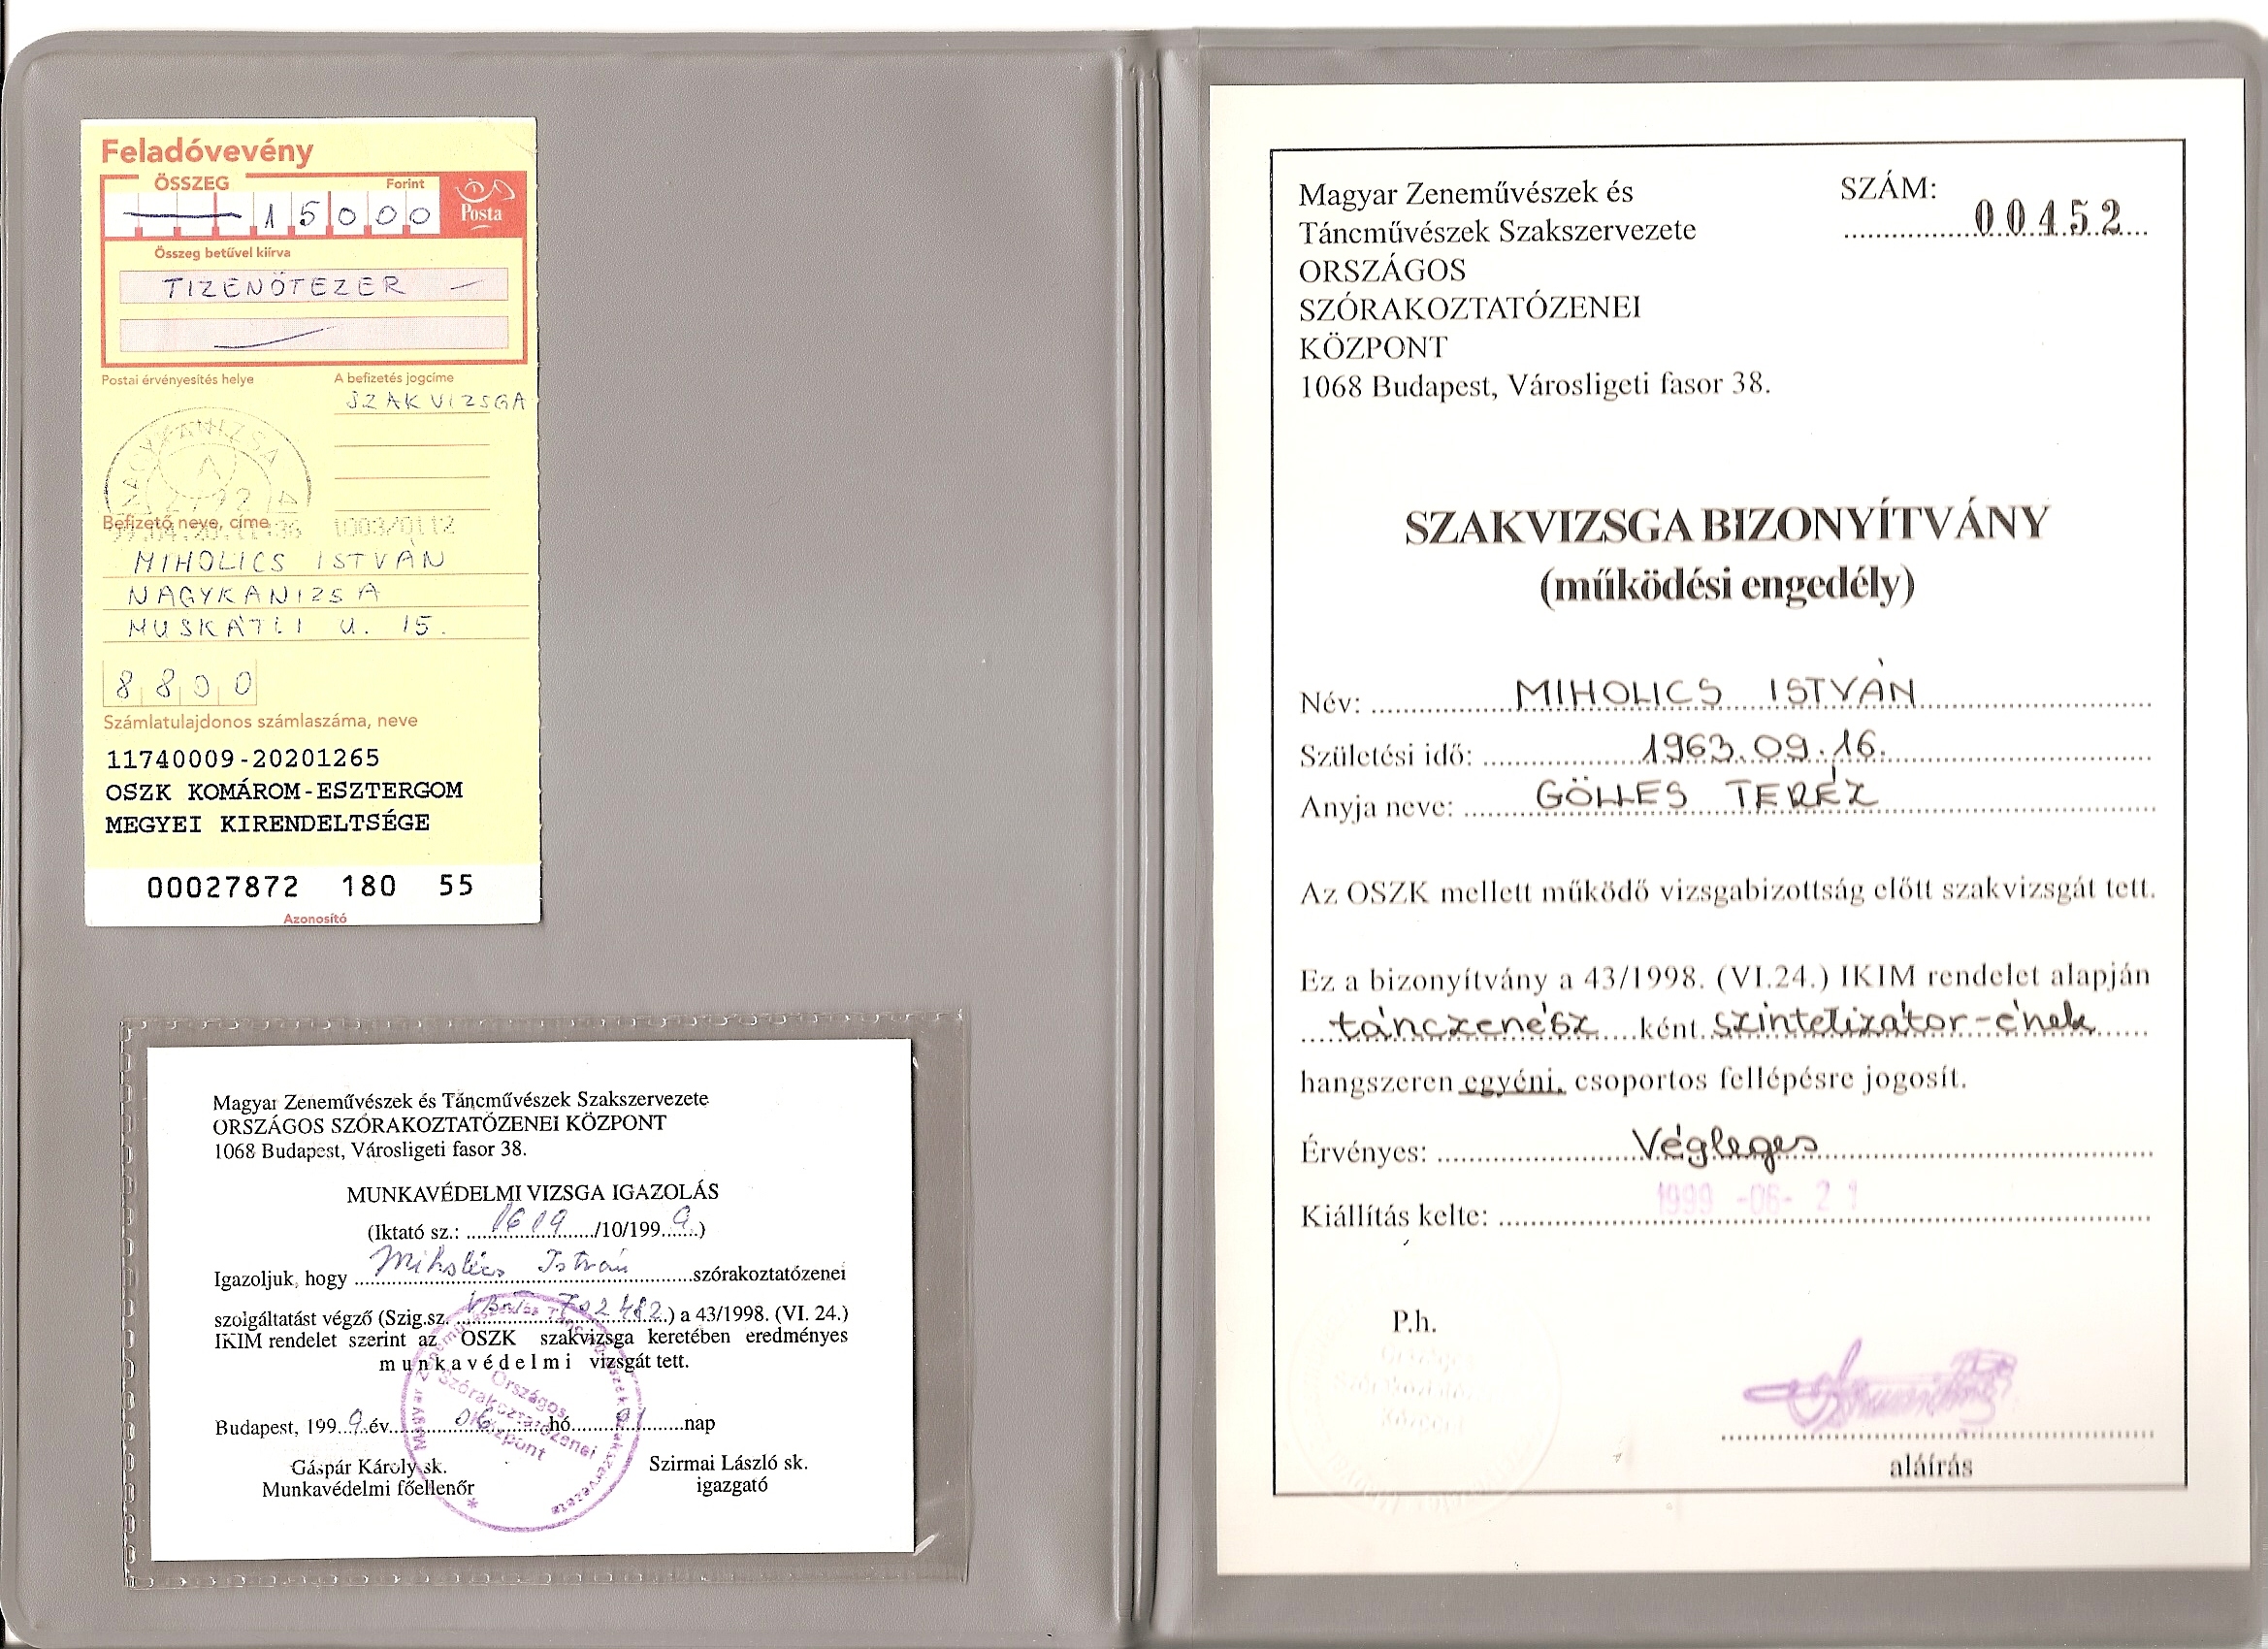 Feladóvevény
ÖSSZEG Forint
15000
Posta
Összeg betűvel kiírva
TIZENÖTEZER
Postai érvényesítés helye
A befizetés jogcíme
SZAKVIZSGA
NAGYKANIZSA 4
Befizető neve, címe
1003/0112
MIHOLICS ISTVÁN
NAGYKANIZSA
MUSKÁTLI U. 15.
8800
Számlatulajdonos számlaszáma, neve
11740009-20201265
OSZK KOMÁROM-ESZTERGOM
MEGYEI KIRENDELTSÉGE
00027872 180 55
Azonosító
Magyar Zeneművészek és Táncművészek Szakszervezete
ORSZÁGOS SZÓRAKOZTATÓZENEI KÖZPONT
1068 Budapest, Városligeti fasor 38.
MUNKAVÉDELMI VIZSGA IGAZOLÁS
(Iktató sz.: 1619/10/1999.)
Igazoljuk, hogy Miholics István szórakoztatózenei
szolgáltatást végző (Szig.sz. 702482) a 43/1998. (VI. 24.)
IKIM rendelet szerint az OSZK szakvizsga keretében eredményes
munkavédelmi vizsgát tett.
Országos
Szórakoztatózenei
Központ
Budapest, 1999 év 06 hó 21 nap
Gáspár Károly sk.
Munkavédelmi főellenőr
Szirmai László sk.
igazgató
Magyar Zeneművészek és
Táncművészek Szakszervezete
ORSZÁGOS
SZÓRAKOZTATÓZENEI
KÖZPONT
1068 Budapest, Városligeti fasor 38.
SZÁM:
00452
SZAKVIZSGA BIZONYÍTVÁNY
(működési engedély)
Név: MIHOLICS ISTVÁN
Születési idő: 1963.09.16.
Anyja neve: GÖLLES TERÉZ
Az OSZK mellett működő vizsgabizottság előtt szakvizsgát tett.
Ez a bizonyítvány a 43/1998. (VI.24.) IKIM rendelet alapján
tánczenész ként szintetizátor-ének
hangszeren egyéni, csoportos fellépésre jogosít.
Érvényes: Végleges
Kiállítás kelte: 1999 -06- 21
P.h.
aláírás